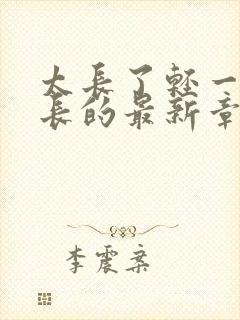 太长了轻一
长的最新章
李震案